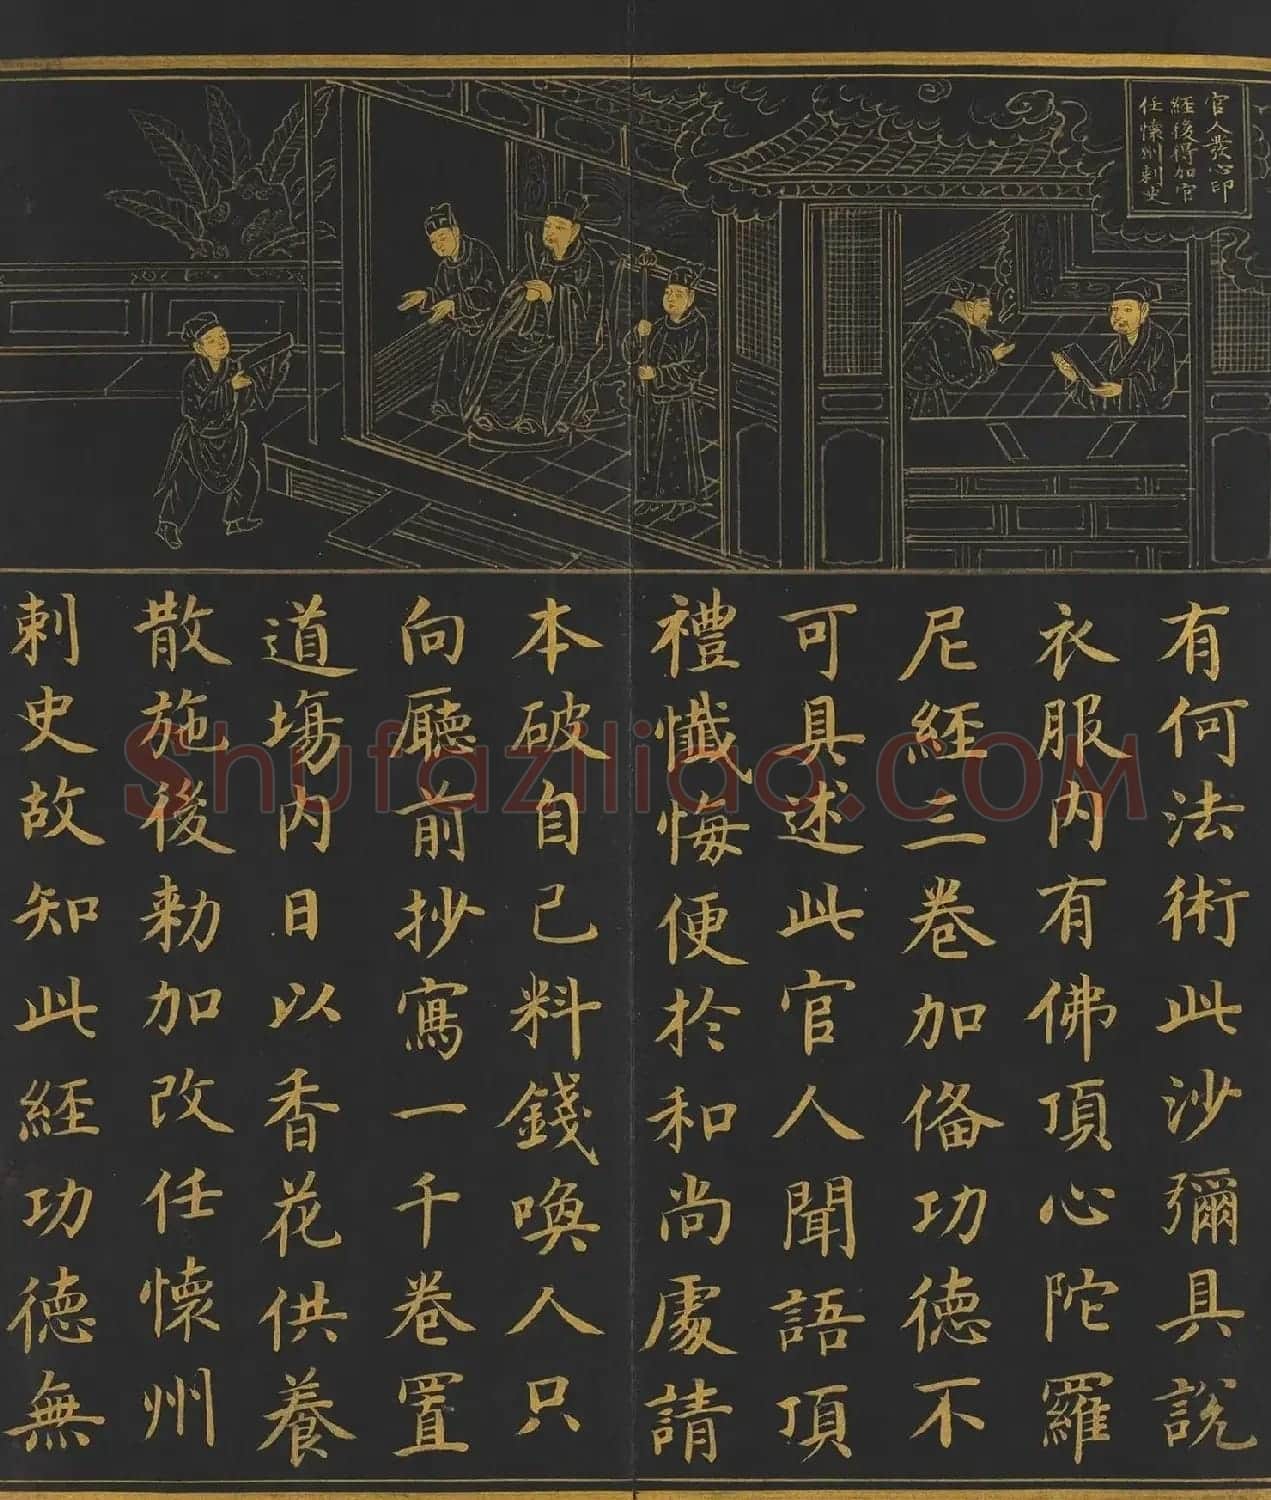 官人發心印
經後得加官
任懷州刺史
有何法術此沙彌具說
衣服內有佛頂心陀羅
尼經三卷加俻功德不
可具述此官人聞語頂
禮懺悔便於和尚處請
本破自己料錢喚人只
向廳前抄寫一千卷置
道場內日以香花供養
散施後勑加改任懷州
刺史故知此經功德無
Shufaziliao.COM